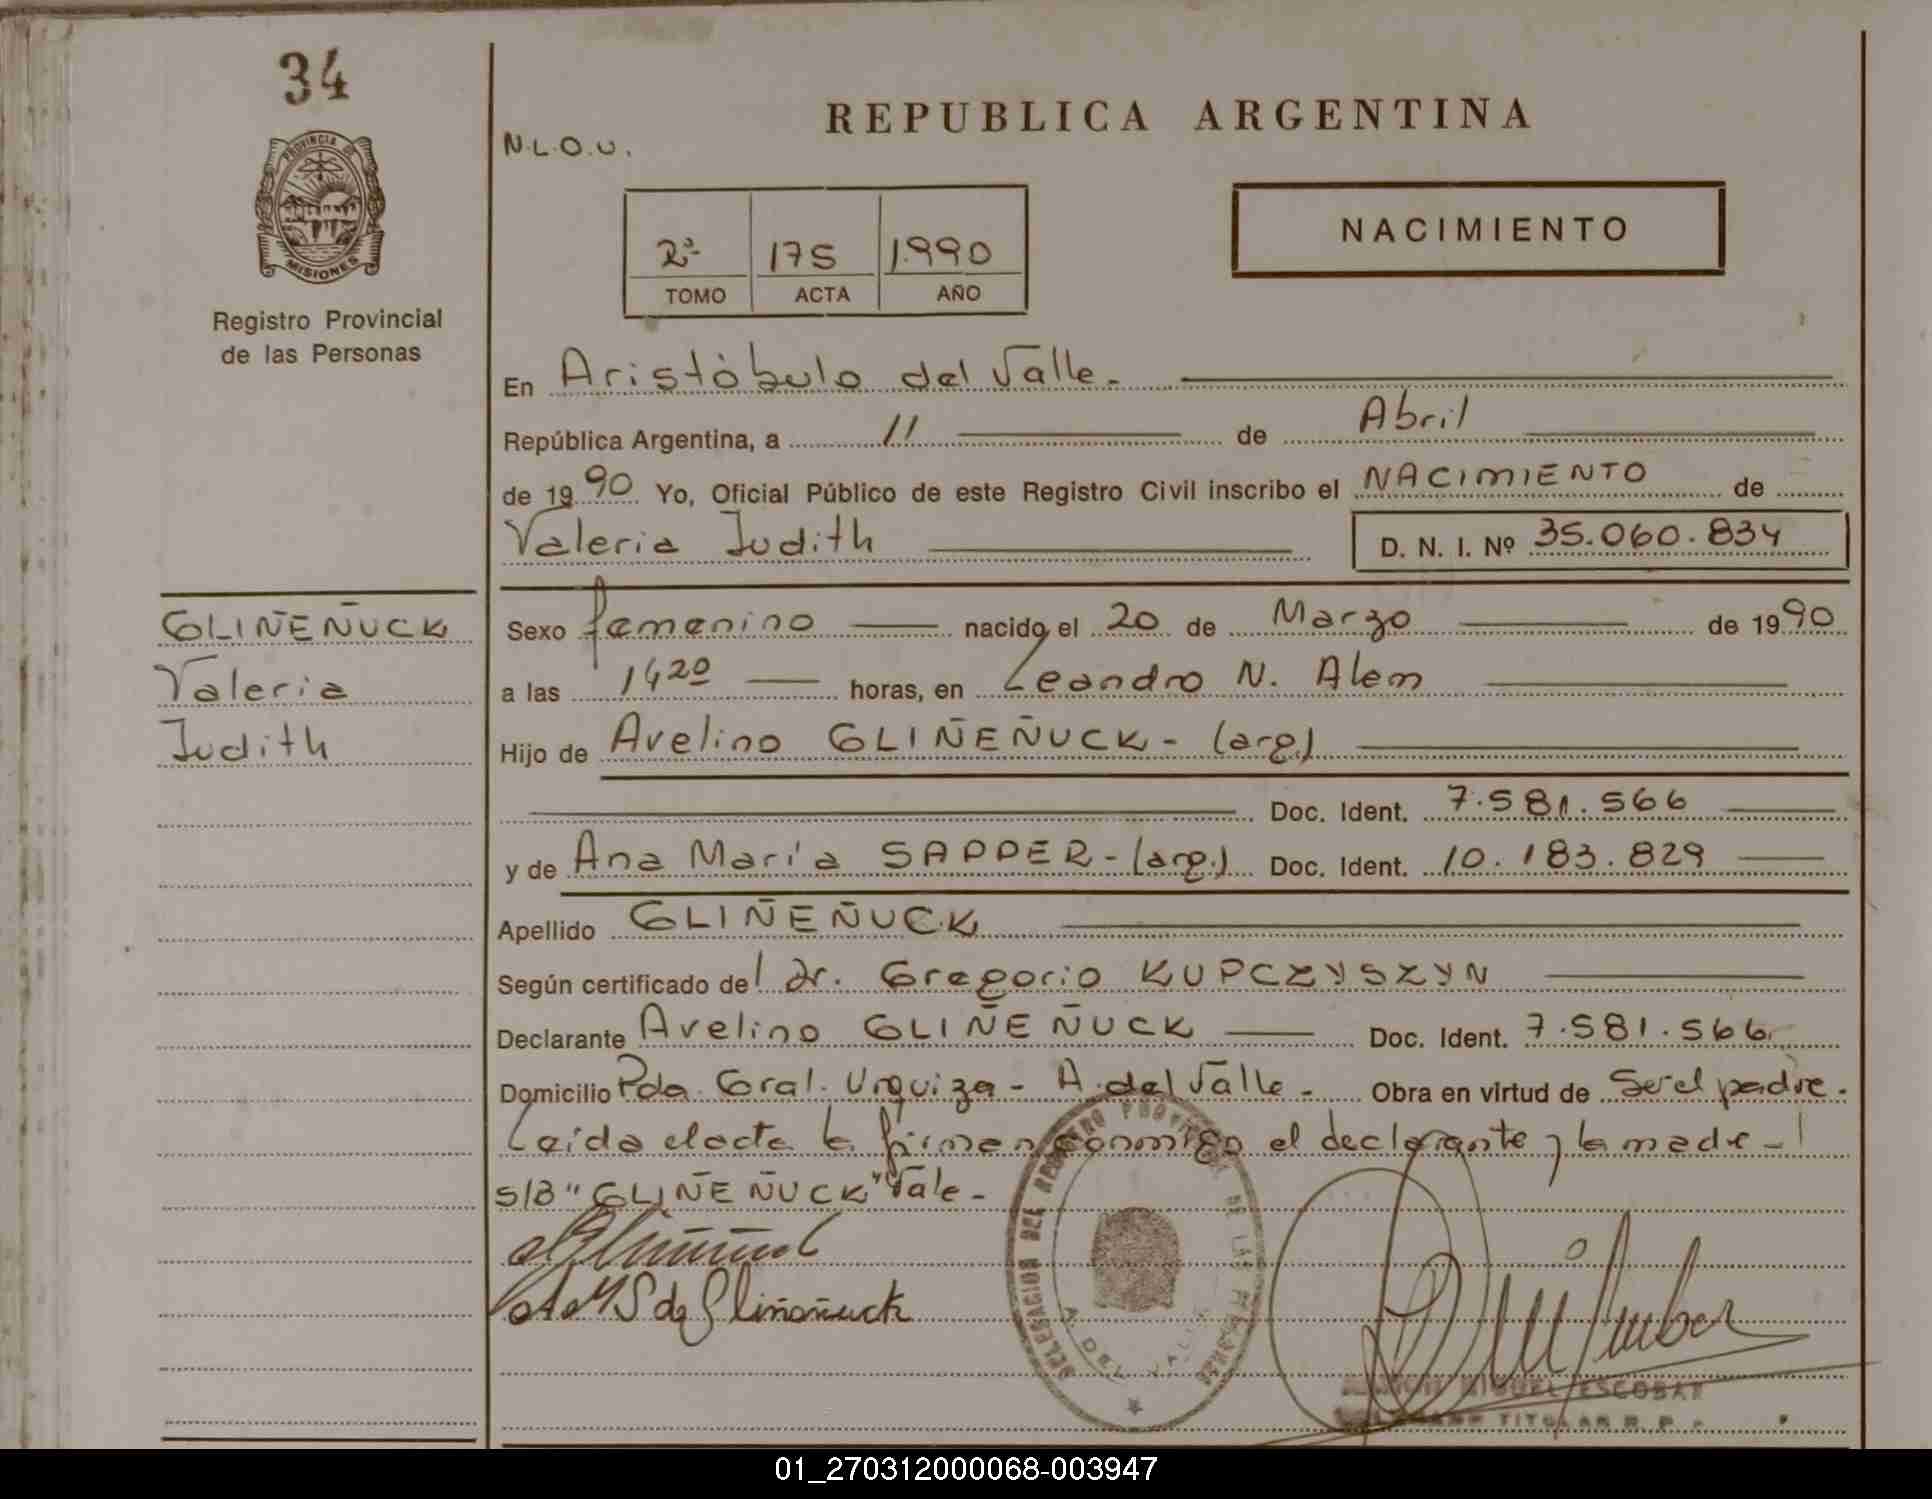 34
PROVINCIA DE
MISIONES
Registro Provincial
de las Personas
N.L.O.U.
REPUBLICA ARGENTINA
2º 175 1.990
TOMO ACTA AÑO
NACIMIENTO
En Aristóbulo del Valle.-
República Argentina, a 11 de Abril
de 1990 Yo, Oficial Público de este Registro Civil inscribo el NACIMIENTO de
Valeria Judith D. N. I. Nº 35.060.834
GLIÑEÑUCK
Valeria
Judith
Sexo femenino nacido el 20 de Marzo de 1990
a las 14 20 horas, en Leandro N. Alem
Hijo de Avelino GLIÑEÑUCK - (arg.)
Doc. Ident. 7.581.566
y de Ana María SAPPER - (arg.) Doc. Ident. 10.183.829
Apellido GLIÑEÑUCK
Según certificado del dr. Gregorio KUPCZYSZYN
Declarante Avelino GLIÑEÑUCK Doc. Ident. 7.581.566
Domicilio Pda. Gral. Urquiza - A. del Valle.- Obra en virtud de Ser el padre.
Leída el acta la firman conmigo el declarante y la madre -
S/B "GLIÑEÑUCK" Vale -
A M S de Gliñeñuck
DELEGACION DEL REGISTRO PROVINCIAL DE LAS PERSONAS
A. DEL VALLE
MIGUEL ESCOBAR
TITULAR R. P.
01_270312000068-003947